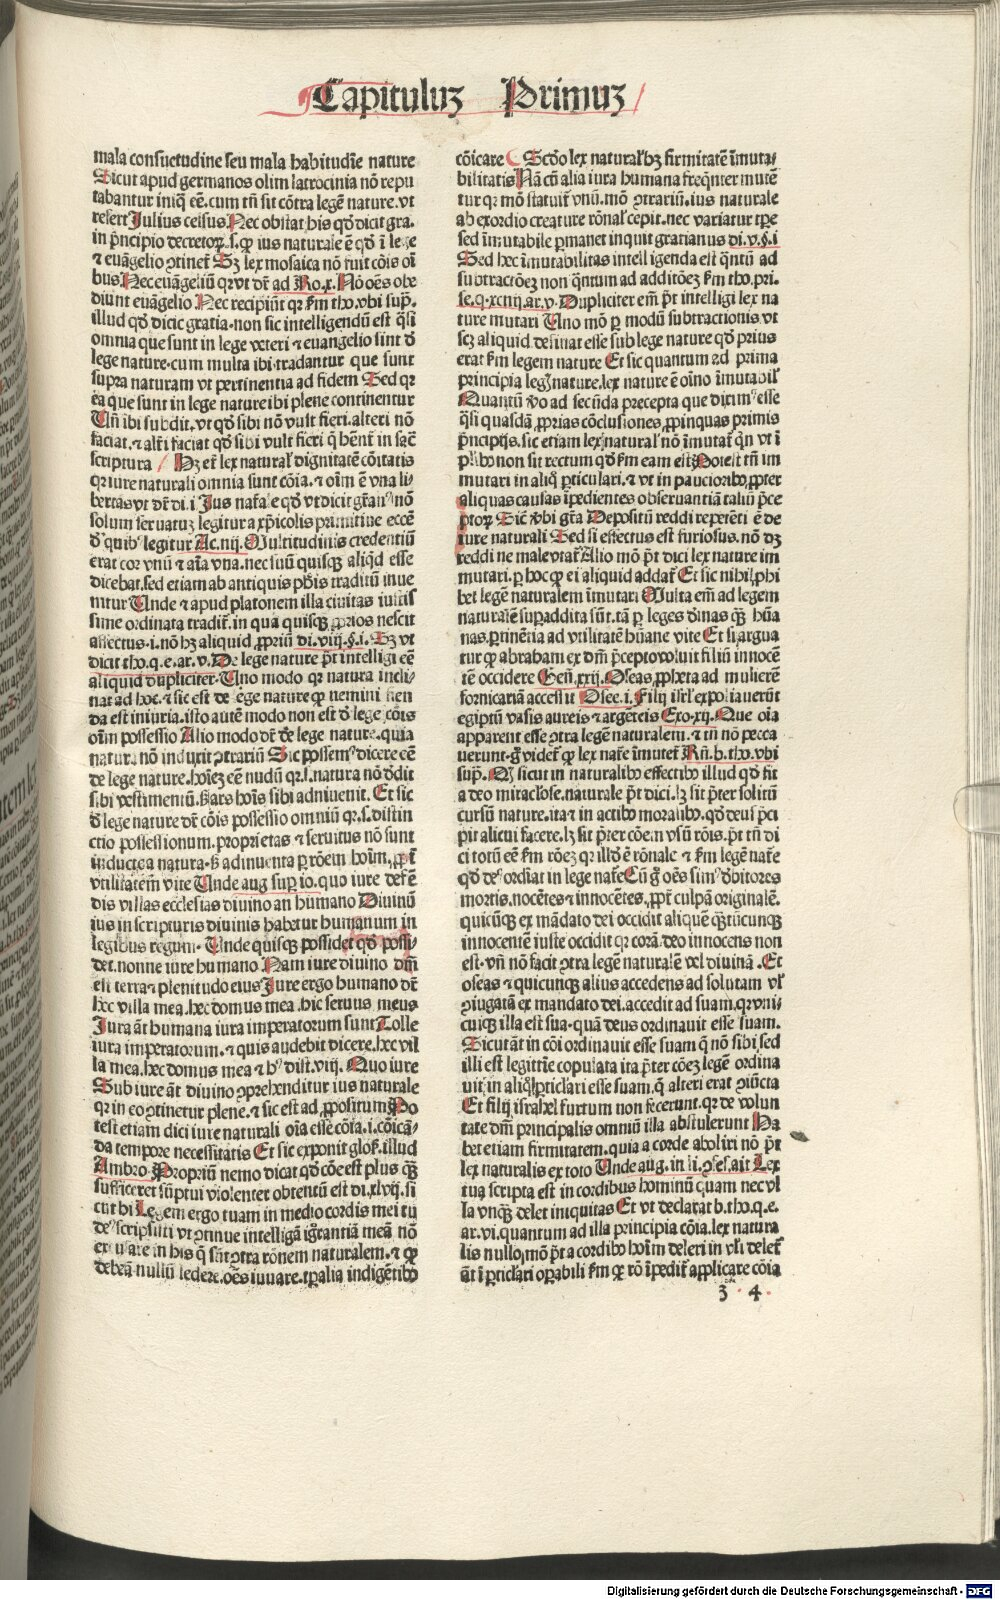 Capituluz Primuz
mala consuetudine seu mala habitudīe nature
Sicut apud germanos olim latrocinia nō repu
tabantur iniq̄ eē.cum tn̄ sit cōtra legē nature.vt
refert Julius celsus.Nec obstat his qd̓ dicit gra.
in p̄ncipio decretoꝝ.s.ꝙ ius naturale ē qd̓ ī lege
⁊ euāgelio ꝯtinet̄ Sꝫ lex mosaica nō fuit cōis oī
bus Nec euāgeliū qꝛ vt dr̄ ad Ro.x. Nō oēs obe
diunt euāgelio Nec recipiūt qꝛ ẜm tho.vbi sup̄.
illud qd̓ dicic gratia.non sic intelligendū est q̄si
omnia que sunt in lege veteri ⁊ euangelio sint d̓
lege nature.cum multa ibi tradantur que sunt
supra naturam vt pertinentia ad fidem Sed qꝛ
ea que sunt in lege nature ibi plene continentur
Un̄ ibi subdit.vt qd̓ sibi nō vult fieri.alteri nō
faciat.⁊ alt̓i faciat qd̓ sibi vult fieri q̄ hēnt̄ in sac̄
scriptura Hꝫ et̓ lex natural̓ dignitatē cōitatis
qꝛ iure naturali omnia sunt cōia.⁊ oīm ē vna li
bertas vt dr̄ di.i.Jus nat̓ale qd̓ vt dicit gr̄an̓ nō
solum seruatuꝫ legitur a xp̄icolis primitiue ecce
d̓ quib̓ legitur Ac.iiij. Multitudinis credentiū
erat cor vnū ⁊ aīa vna.nec suū quisqꝫ aliqd̓ esse
dicebat.sed etiam ab antiquis ph̄is traditū inue
nitur Unde ⁊ apud platonem illa ciuitas iustis
sime ordinata tradit̄.in qua quisqꝫ ꝓprios nescit
affectus.i.nō hꝫ aliquid ꝓpriū di.viij.§.i. Sꝫ vt
dicit tho.q.e.ar.v. De lege nature p̄t intelligi eē
aliquid dupliciter.Uno modo qꝛ natura incli
nat ad hoc.⁊ sic est de lege nature ꝙ nemini fien
da est iniuria.isto autē modo non est d̓ lege cōis
oīm possessio Alio modo dr̄ de lege nature.quia
natura nō induxit ꝯtrariū Sic possem̓ dicere eē
de lege nature.hoīez eē nudū qꝛ.s.natura nō d̓dit
sibi vestimentū.ẜ ars hoīs sibi adinuenit. Et sic
d̓ lege nature dr̄ cōis possessio omniū qꝛ.s.distin
ctio possessionum.proprietas ⁊ seruitus nō sunt
inductea natura.ẜ adinuenta ꝑ rōem hoīm.ꝓpt̓
vtilitatem vite Unde aug sup̄ io.quo iure def̄ē
dis villas ecclesias diuino an humano Diuinū
ius in scripturis diuinis habetur humanum in
legibus regum. Unde quisqꝫ possidet qd̓ possi
det.nonne iure humano Nam iure diuino dn̄i
est terra ⁊ plenitudo eius Jure ergo humano dr̄
hec villa mea.hec domus mea.hic seruus meus
Jura āt humana iura imperatorum sunt Tolle
iura imperatorum.⁊ quis audebit dicere.hec vil
la mea.hec domus mea ⁊ h̓ dist.viij. Quo iure
Sub iure āt diuino ꝯprehenditur ius naturale
qꝛ in eo ꝯtinetur plene.⁊ sic est ad ꝓpositum Po
test etiam dici iure naturali oīa esse cōia.i.cōicā
da tempore necessitatis Et sic exponit glos̄.illud
Ambro. Propriū nemo dicat qd̓ cōe est plus q̄ꝫ
sufficeret sūptui violenter obtentū est di.xlvij.si
cut hi Legem ergo tuam in medio cordis mei tu
deˢscripsisti vt ꝯtinue intelligā ig̓rantiā meā nō
excusare in his q̄ sūt ꝯtra rōnem naturalem.⁊ ꝙ
debeā nulliū ledere.oēs iuuare.tꝑalia indigētibꝰ
cōicare Scd̓o lex natural̓ hꝫ firmitatē īmuta
bilitatis Nā cū alia iura humana freq̄nter mutē
tur qꝛ mō statuit̄ vnū.mō ꝯtrariū.ius naturale
ab exordio creature rōnal̓ cepit.nec variatur tꝑe
sed īmutabile ꝑmanet inquit gratianus di.v.§.i
Sed hec īmutabilitas intelligenda est q̄ntū ad
subtractōez non q̄ntum ad additōez ẜm tho.pri.
se.q.xciiij.ar.v. Dupliciter em̄ p̄t intelligi lex na
ture mutari Uno mō ꝑ modū subtractionis vt
scꝫ aliquid desinat esse sub lege nature qd̓ prius
erat ẜm legem nature Et sic quantum ad prima
principia legis nature.lex nature ē oīno īmutabil̓
Quantū v̓o ad secūda precepta que dicim̓ esse
q̄si quasdā ꝓprias cōclusiones ꝓpinquas primis
p̄ncipijs.sic etiam lex natural̓ nō īmutat̄ q̄n vt ī
plibꝰ non sit rectum qd̓ ẜm eam est Potest tn̄ im
mutari in aliq̄ ꝑticulari.⁊ vt in paucioribꝰ.ꝓpter
aliquas causas īpedientes obseruantiā taliū p̄ce
ptoꝝ Sic̄ v̓bi gr̄a Depositū reddi repetēti ē de
iure naturali Sed si effectus est furiosus.nō dꝫ
reddi ne male vtat̄ Alio mō p̄t dici lex nature im
mutari.ꝑ hoc ꝙ ei aliquid addat̄ Et sic nihil ꝓhi
bet legē naturalem īmutari Multa em̄ ad legem
naturalē suꝑaddita sūt.tā ꝑ leges d̓inas q̄ꝫ hūa
nas.ꝑtinētia ad vtilitatē hūane vite Et si argua
tur ꝙ abrabam ex dn̄i p̄cepto voluit filiū innocē
tē occidere Gen̄.xxij.Oseas.ꝓpheta ad mulierē
fornicariā accessit Osee.i. Filij isrl̓ expoliauerūt
egiptū vasis aureis ⁊ argēteis Exo.xij. Que oīa
apparent esse ꝯtra legē naturalem.⁊ tn̄ nō pecca
uerunt.g̓ videt̄ ꝙ lex nat̓e īmutet̄ Rn̄.b.tho.vbi
sup̄. Qꝫ sicut in naturalibꝰ effectibꝰ illud qd̓ fit
a deo miraclose.naturale p̄t dici.lꝫ sit p̄ter solitū
cursū nature.ita ⁊ in actibꝰ moralibꝰ.qd̓ deus p̄ci
pit alicui facere.lꝫ sit p̄ter cōem vsū rōis.p̄t tn̄ di
ci totū eē ẜm rōez qꝛ ill̓d ē rōnale ⁊ ẜm legē nat̓e
qd̓ de⁹ ordīat in lege nat̓e Cū g̓ oēs sim⁹ d̓bitores
mortis.nocētes ⁊ innocētes.ꝓpt̓ culpā originalē.
quicūqꝫ ex mādato dei occidit aliquē q̄ꝫtūcunqꝫ
innocentē iuste occidit qꝛ corā deo innocens non
est.vn̄ nō facit ꝯtra legē naturalē vel diuinā. Et
oseas ⁊ quicunqꝫ alius accedens ad solutam vl̓
ꝯiugatā ex mandato dei.accedit ad suam.qꝛ vni
cuiqꝫ illa est sua.quā deus ordinauit esse suam.
Sicut āt in cōi ordinauit esse suam q̄ nō sibi sed
illi est legittīe copulata ita p̄ter cōez legē ordina
uit in aliq̄ ꝑticlari esse suam.q̄ alteri erat ꝯiūcta
Et filij israhel furtum non fecerunt.qꝛ de volun
tate dn̄i principalis omniū illa abstulerunt Ha
bet etiam firmitatem.quia a corde aboliri nō p̄t
lex naturalis ex toto Unde aug.in li.ꝯfes.ait Lex
tua scripta est in cordibus hominū quam nec vl
la vnqꝫ delet iniquitas Et vt declarat b.tho.q.e.
ar.vi.quantum ad illa principia cōia.lex natura
lis nullo mō p̄t a cordibꝰ hoīm deleri in vl̓i delet̄
āt ī ꝑticlari oꝑabili ẜm ꝙ rō īpedit̄ applicare cōia
3 4
Digitalisierung gefördert durch die Deutsche Forschungsgemeinschaft - DFG